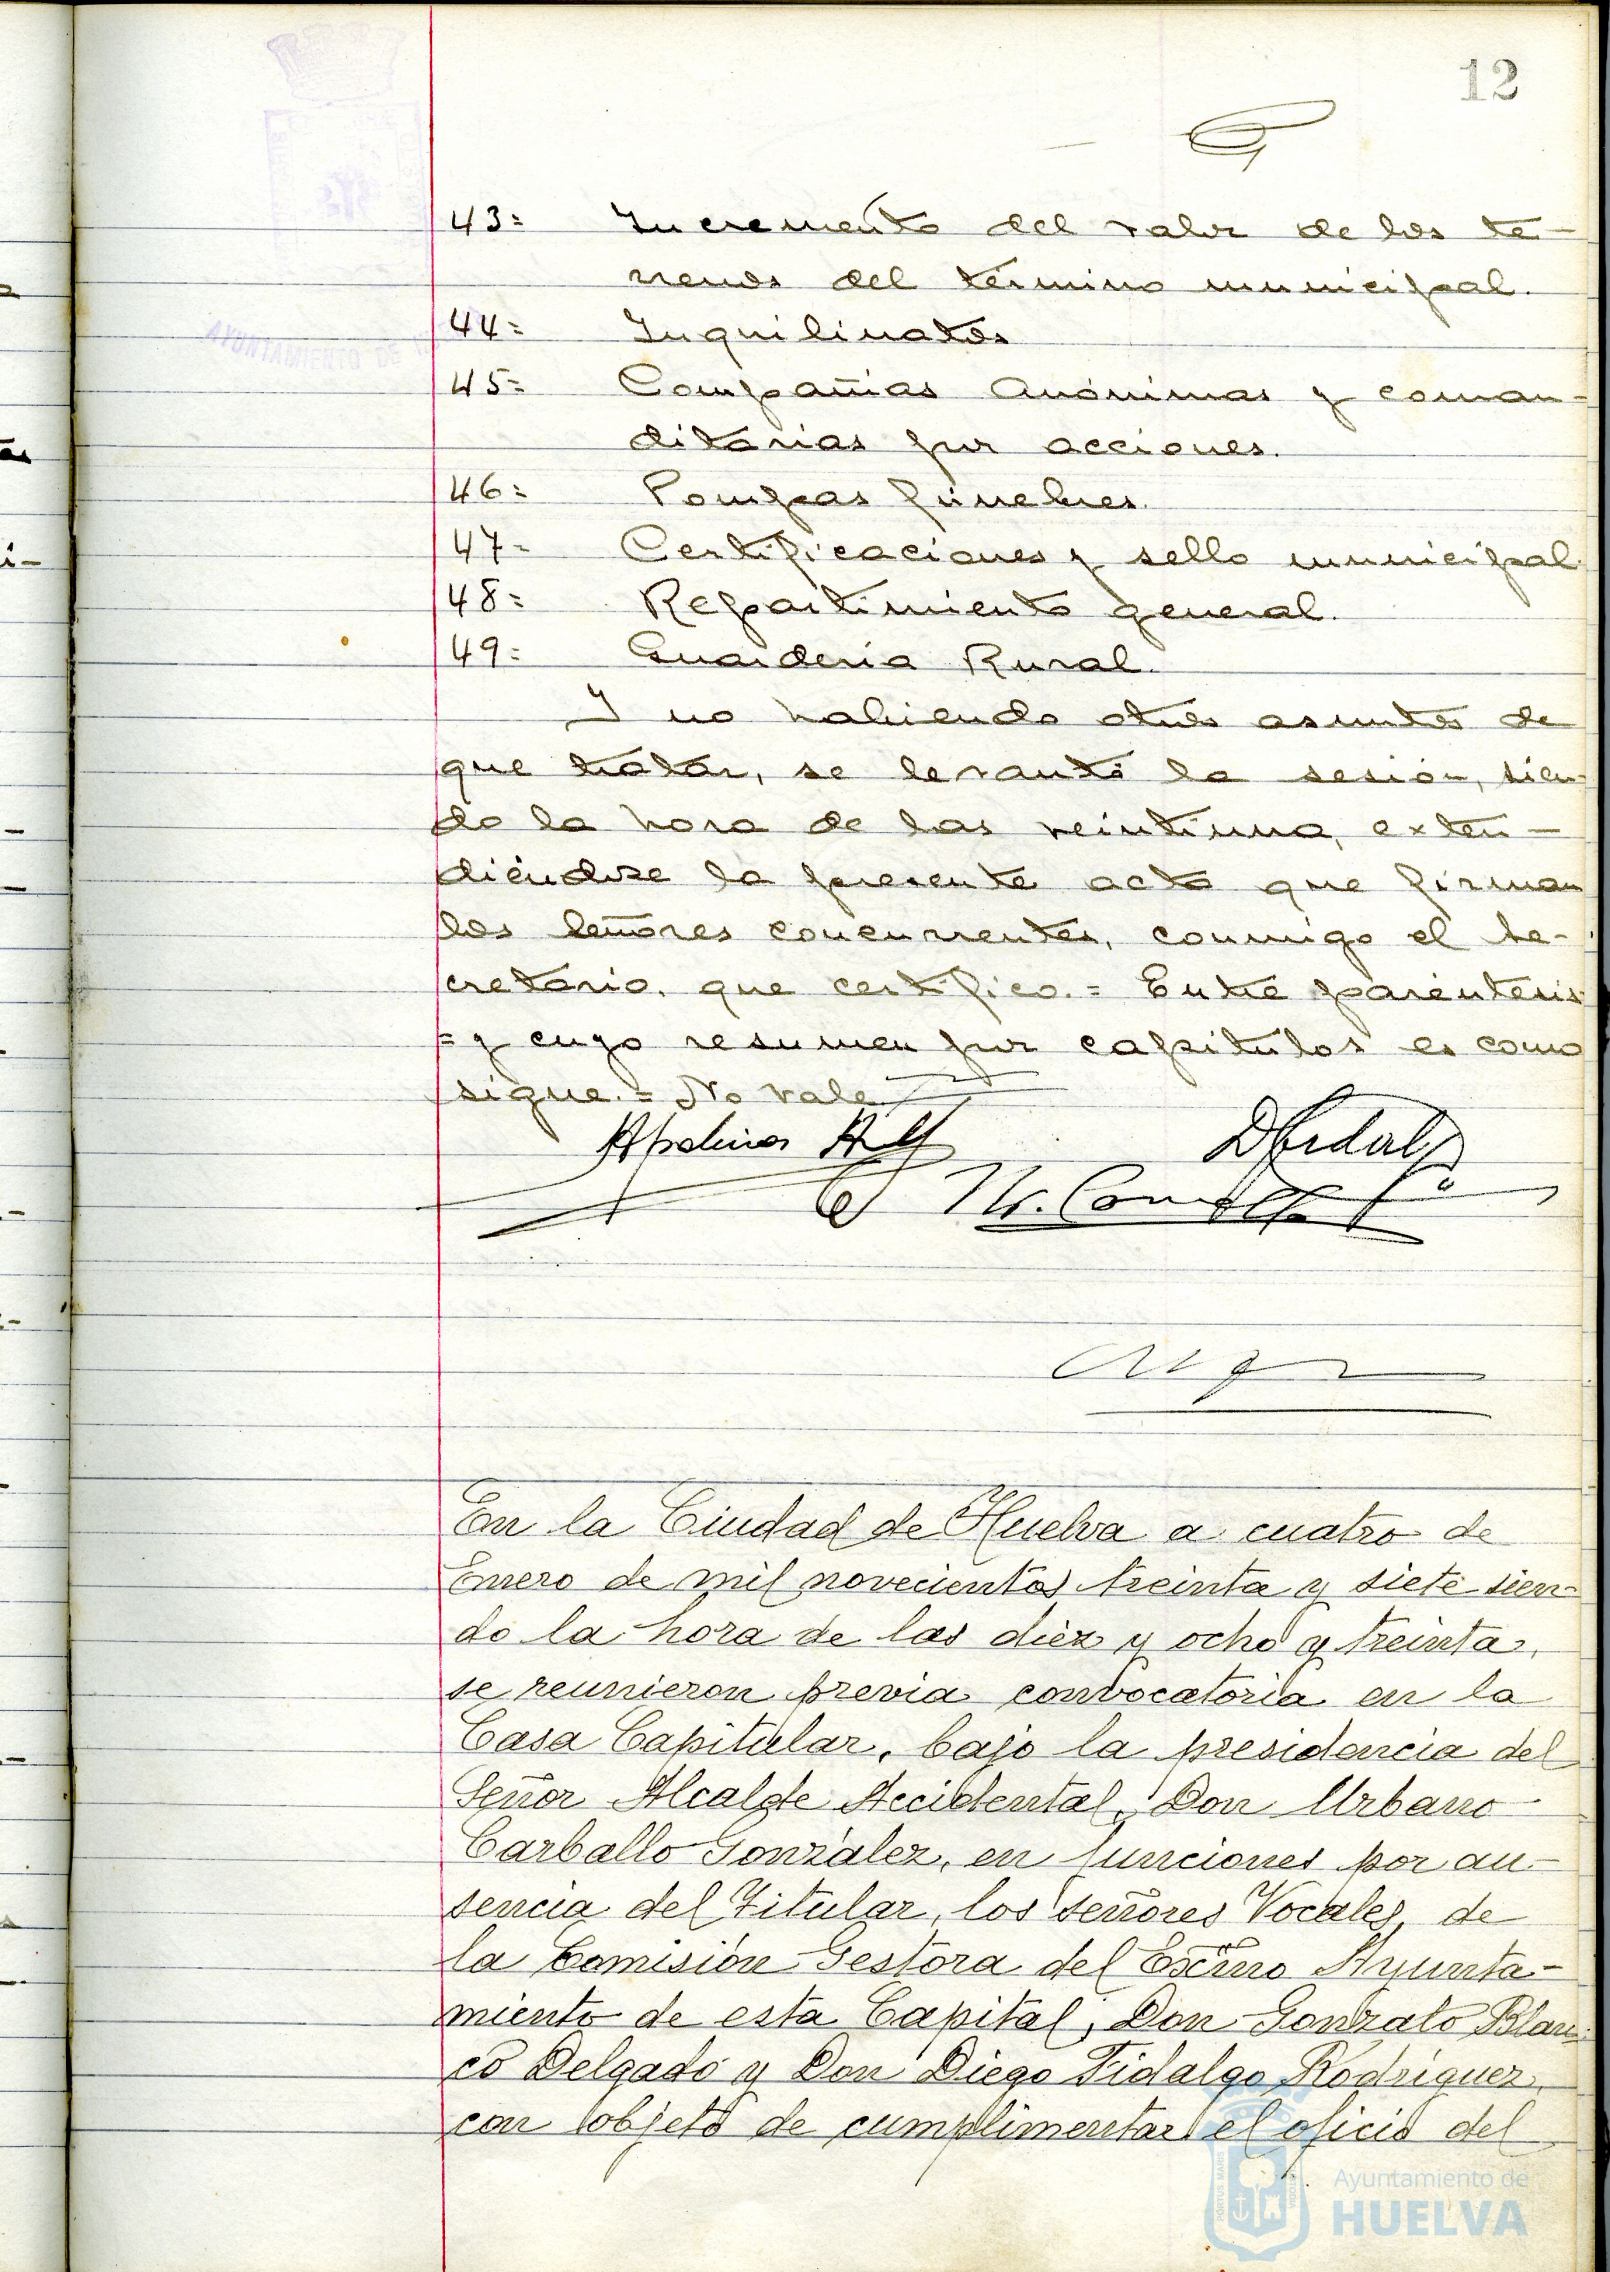 12
43= Incremento del valor de los te-
rrenos del término municipal.
44= Inquilinatos
45= Compañias Anónimas y coman-
ditarias por acciones.
46= Pompas fúnebres.
47= Certificaciones y sello municipal.
48= Repartimiento general.
49= Guarderia Rural.
Y no habiendo otros asuntos de
que tratar, se levantó la sesión, sien-
do la hora de las veintiuna, exten-
diéndose la presente acta que firman
los señores concurrentes, conmigo el Se-
cretario, que certifico.= Entre paréntesis
= y cuyo resumen por capitulos es como
sigue.= No vale
En la Ciudad de Huelva a cuatro de
Enero de mil novecientos treinta y siete sien-
do la hora de las diez y ocho y treinta,
se reunieron previa convocatoria en la
Casa Capitular, bajo la presidencia del
Señor Alcalde Accidental, Don Urbano
Carballo González, en funciones por au-
sencia del Titular, los señores Vocales de
la Comisión Gestora del Excmo Ayunta-
miento de esta Capital, Don Gonzalo Blan-
co Delgado y Don Diego Fidalgo Rodríguez,
con objeto de cumplimentar el oficio del
AYUNTAMIENTO DE
Ayuntamiento de
HUELVA